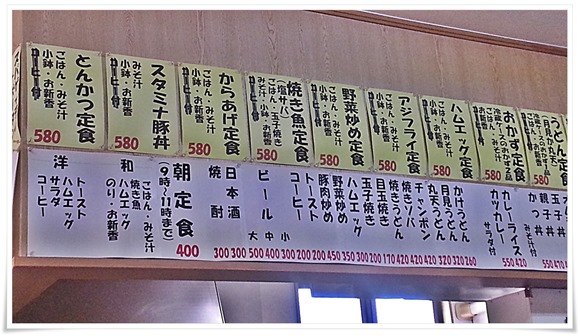 うどん定食
580
おかず定食
580
ハムエッグ定食
ごはん・みそ汁
小鉢・お新香
コーヒー付
580
アジフライ定食
ごはん・みそ汁
小鉢・お新香
コーヒー付
580
野菜炒め定食
ごはん・みそ汁
小鉢・お新香
コーヒー付
580
焼き魚定食
(塩サバ)
ごはん・玉子焼き
みそ汁・小鉢・お新香
コーヒー付
580
からあげ定食
ごはん・みそ汁
小鉢・お新香
コーヒー付
580
スタミナ豚丼
みそ汁
小鉢・お新香
コーヒー付
580
とんかつ定食
ごはん・みそ汁
小鉢・お新香
コーヒー付
580
玉子丼
親子丼 470
かつ丼 550
カレーライス みそ汁付 420
カツカレー サラダ付 550
かけうどん 260
月見うどん 320
丸天うどん 320
チャンポン 420
焼きソバ 420
焼きうどん 420
目玉焼き 170
玉子焼き 200
ハムエッグ 300
野菜炒め 350
豚肉炒め 450
トースト 200
ビール
小 300
中 400
大 500
日本酒 300
焼酎 300
朝定食 400
(9時~11時まで)
和
ごはん・みそ汁
焼き魚
ハムエッグ
のり・お新香
洋
トースト
ハムエッグ
サラダ
コーヒー